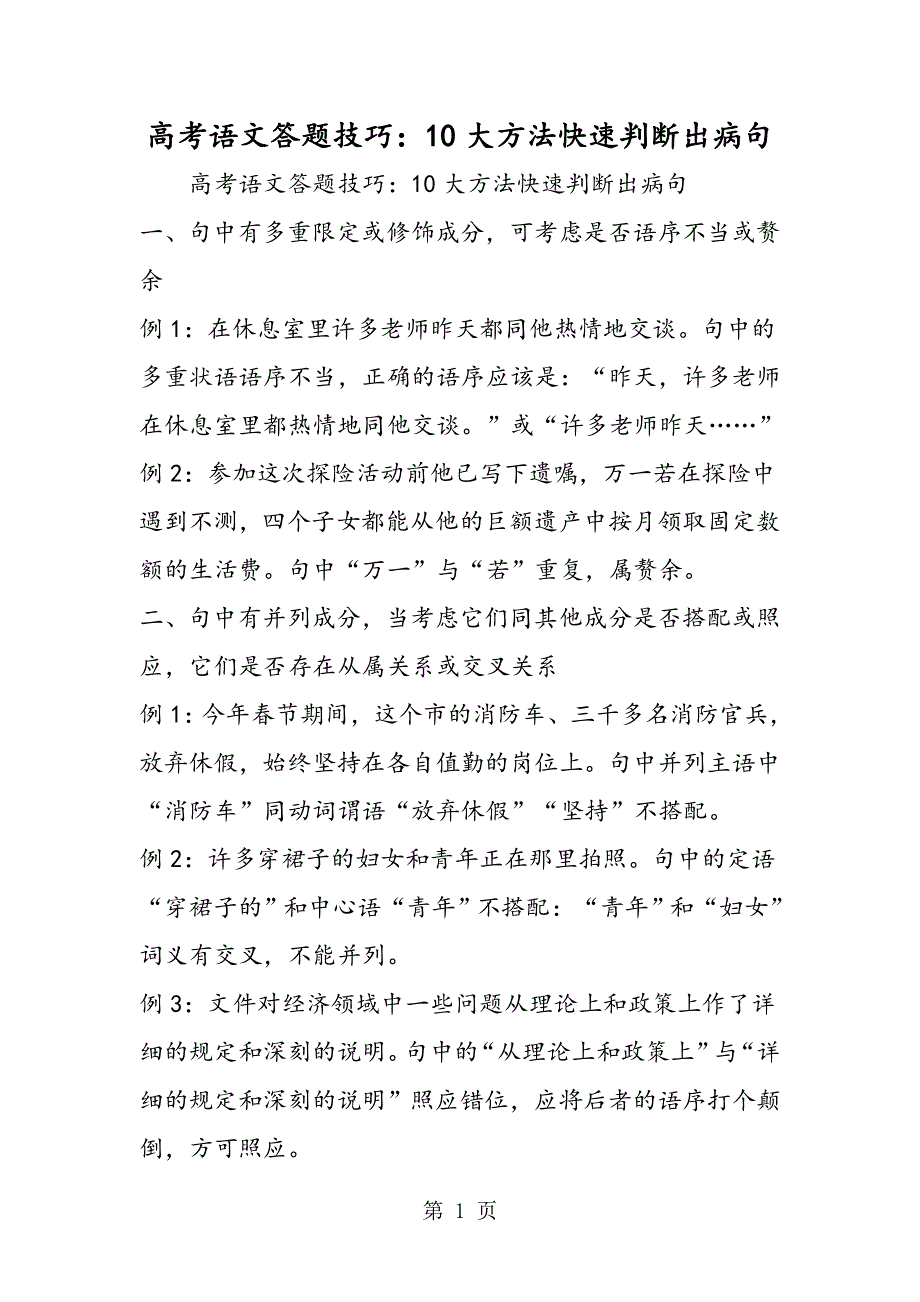 高考语文答题技巧：10 大方法快速判断出病句
高考语文答题技巧：10 大方法快速判断出病句
一、句中有多重限定或修饰成分，可考虑是否语序不当或赘
余
例 1：在休息室里许多老师昨天都同他热情地交谈。句中的
多重状语语序不当，正确的语序应该是：“昨天，许多老师
在休息室里都热情地同他交谈。”或“许多老师昨天……”
例 2：参加这次探险活动前他已写下遗嘱，万一若在探险中
遇到不测，四个子女都能从他的巨额遗产中按月领取固定数
额的生活费。句中“万一”与“若”重复，属赘余。
二、句中有并列成分，当考虑它们同其他成分是否搭配或照
应，它们是否存在从属关系或交叉关系
例 1：今年春节期间，这个市的消防车、三千多名消防官兵，
放弃休假，始终坚持在各自值勤的岗位上。句中并列主语中
“消防车”同动词谓语“放弃休假”“坚持”不搭配。
例 2：许多穿裙子的妇女和青年正在那里拍照。句中的定语
“穿裙子的”和中心语“青年”不搭配：“青年”和“妇女”
词义有交叉，不能并列。
例 3：文件对经济领域中一些问题从理论上和政策上作了详
细的规定和深刻的说明。句中的“从理论上和政策上”与“详
细的规定和深刻的说明”照应错位，应将后者的语序打个颠
倒，方可照应。
第 1 页